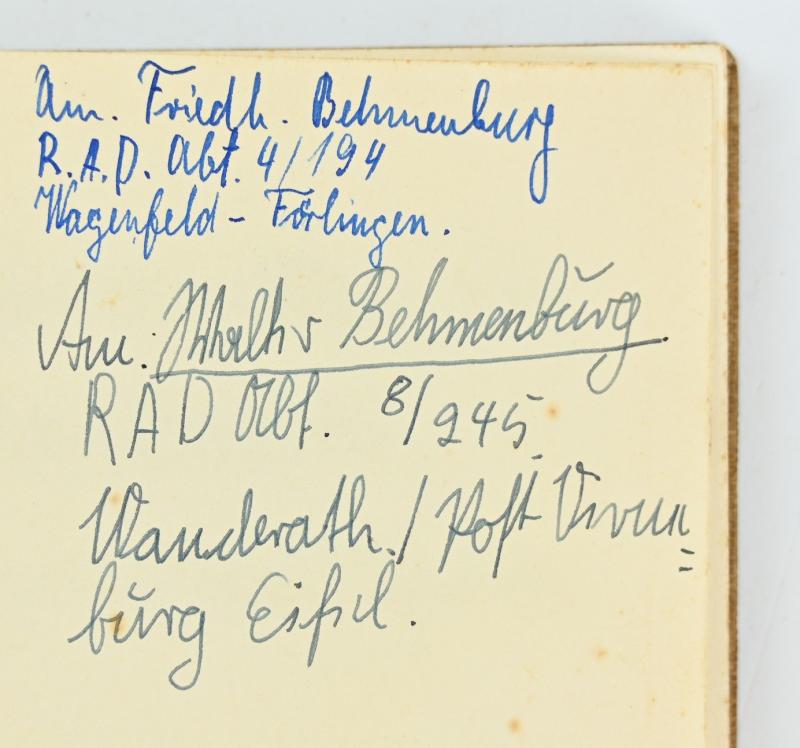 Am. Friedh. Behmenburg
R.A.D. Abt. 4/194
Wagenfeld - Förlingen.
Am. Walter Behmenburg.
RAD Abt. 8/245
Wanderath./Post Virne=
burg Eifel.